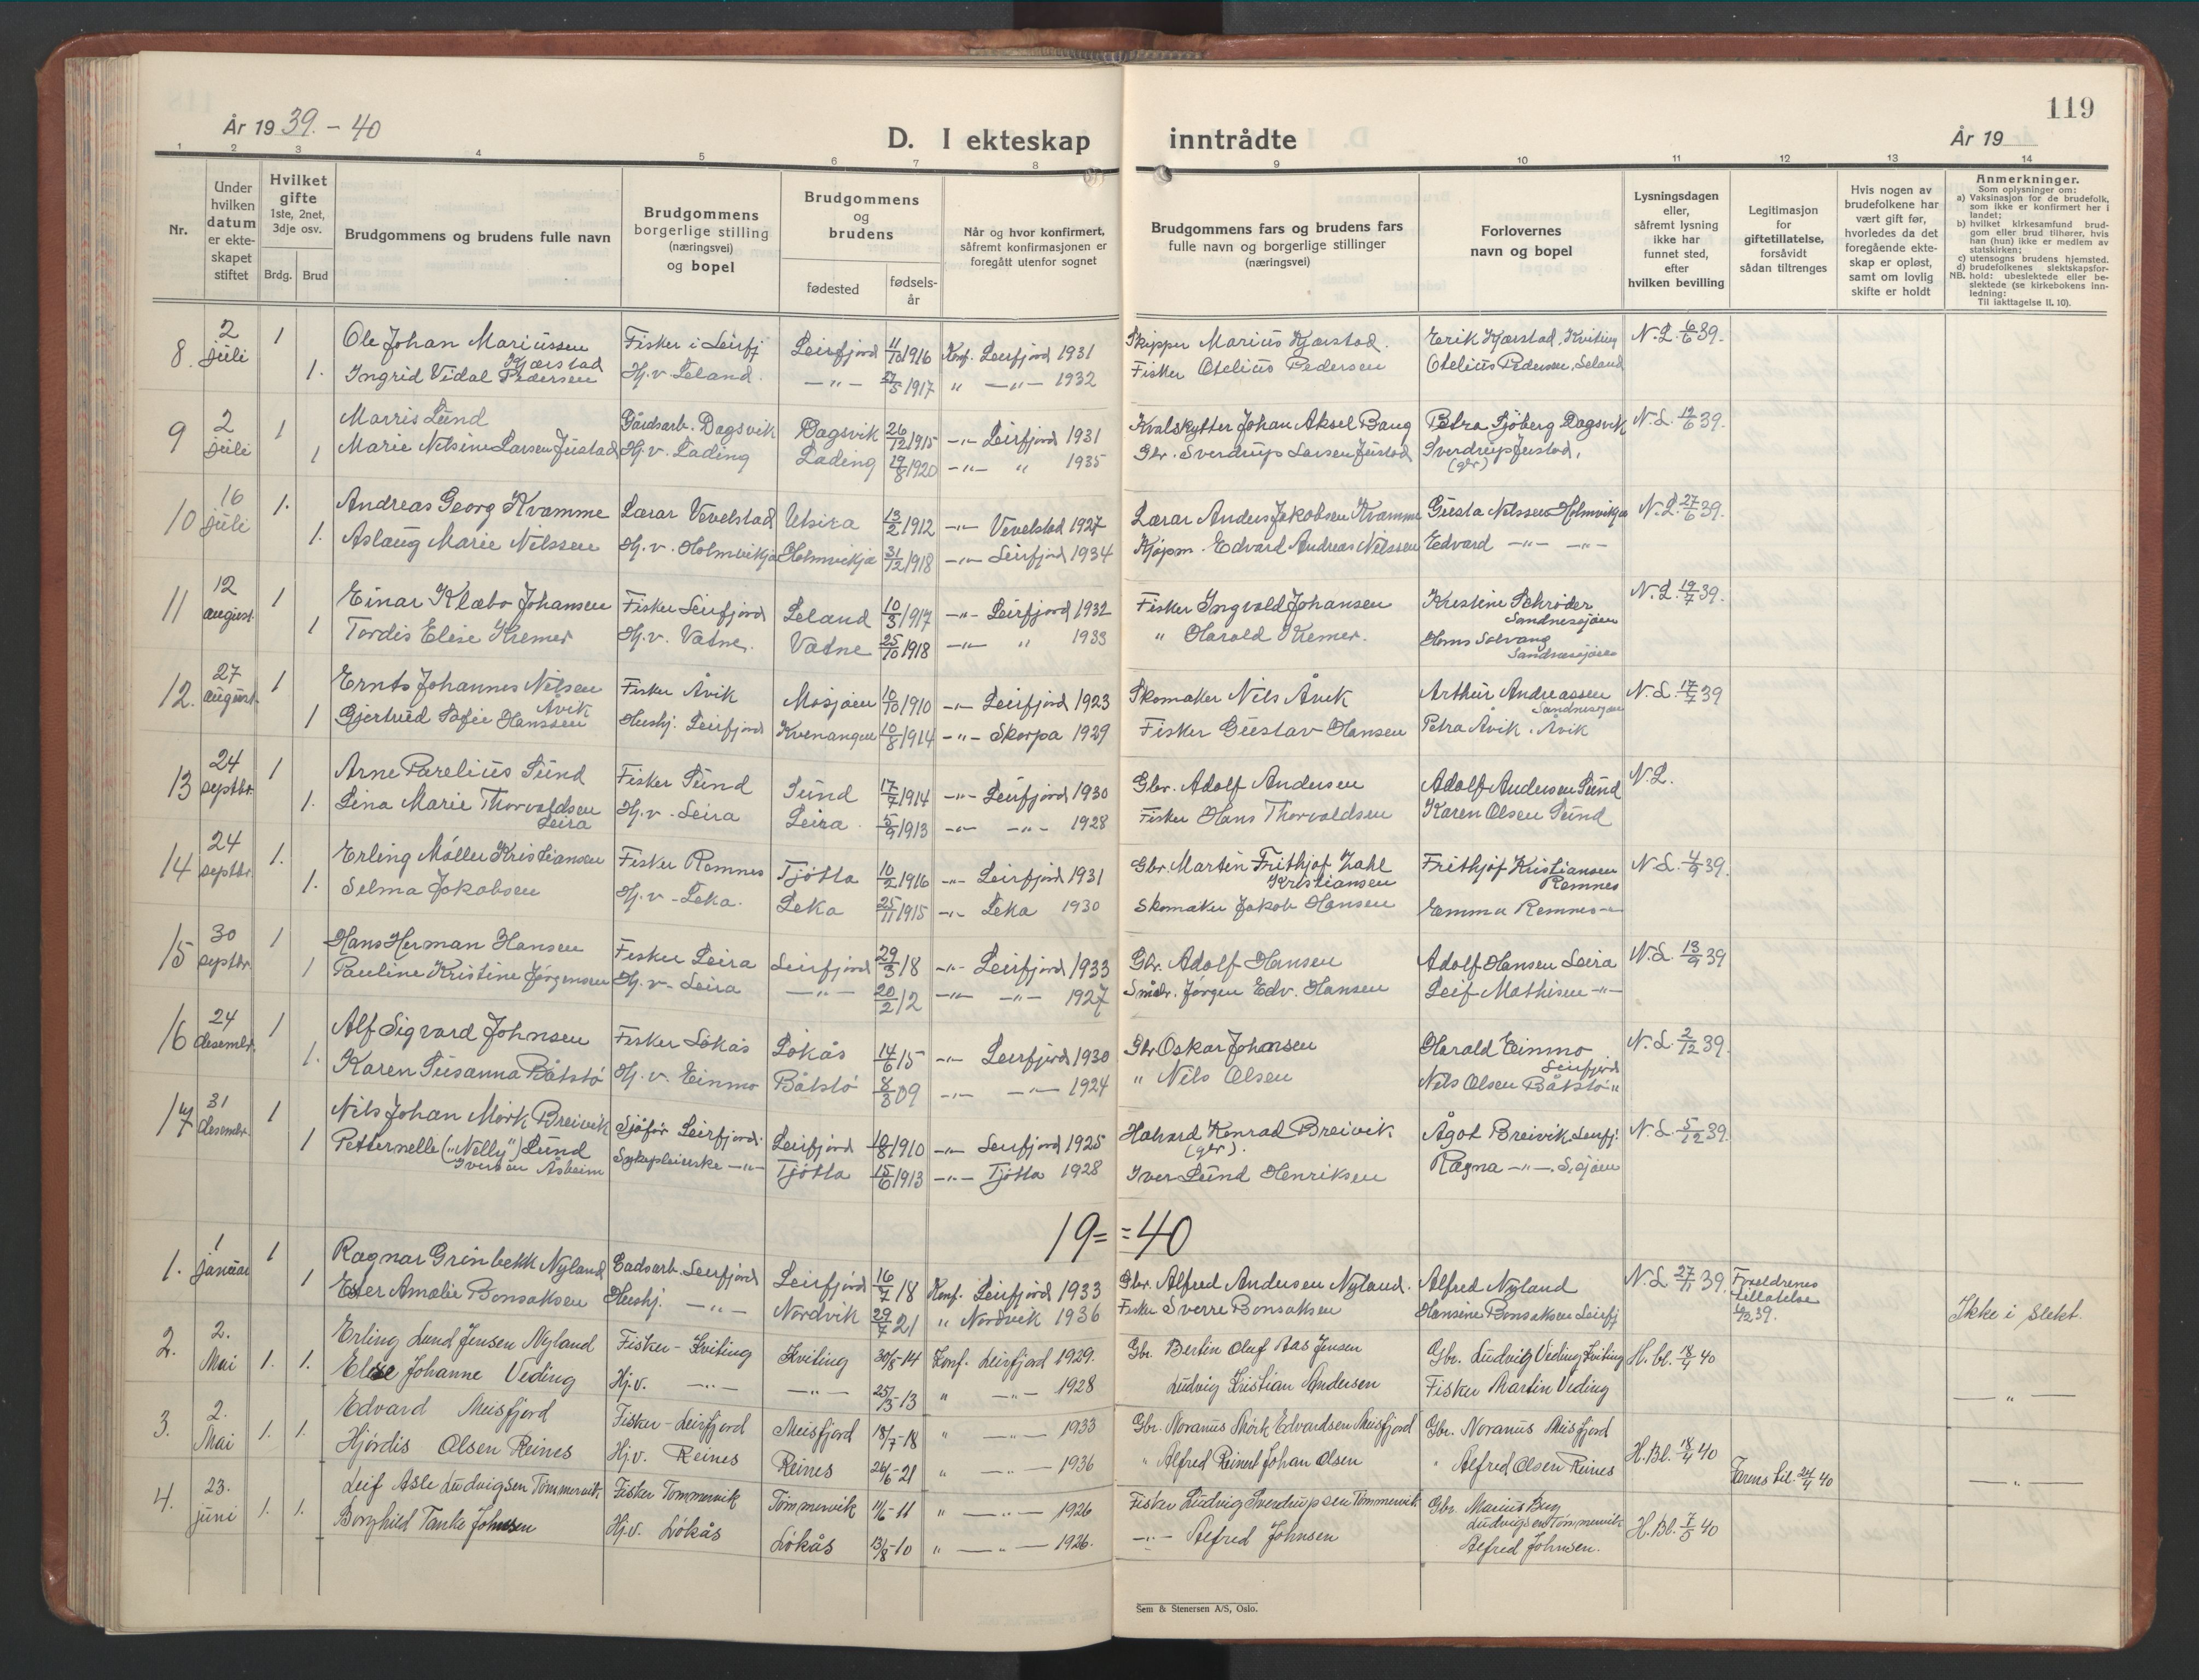 119
År 19 39. - 40
D. I ekteskap inntrådte
År 19
1 2 3 4 5 6 7 8 9 10 11 12 13 14
Nr.
Under hvilken datum er ekte-skapet stiftet
Hvilket gifte 1ste, 2net, 3dje osv.
Brdg. Brud
Brudgommens og brudens fulle navn
Brudgommens borgerlige stilling (næringsvei) og bopel
Brudgommens og brudens
fødested
fødsels-år
Når og hvor konfirmert, såfremt konfirmasjonen er foregått utenfor sognet
Brudgommens fars og brudens fars fulle navn og borgerlige stillinger (næringsvei)
Forlovernes navn og bopel
Lysningsdagen eller, såfremt lysning ikke har funnet sted, efter hvilken bevilling
Legitimasjon for giftetillatelse, forsåvidt sådan tiltrenges
Hvis nogen av brudefolkene har vært gift før, hvorledes da det foregående ekte-skap er opløst, samt om lovlig skifte er holdt
Anmerkninger.
Som oplysninger om:
a) Vaksinasjon for de brudefolk, som ikke er konfirmert her i landet;
b) hvilket kirkesamfund brud-gom eller brud tilhører, hvis han (hun) ikke er medlem av statskirken;
c) utensogns brudens hjemsted.
d) brudefolkenes slektskapsfor-
NB. hold: ubeslektede eller be-slektede (se kirkebokens inn-ledning:
Til iakttagelse II. 10).
8. 2 juli 1 Ole Johan Mariussen Kjærstad Fisker i Leirfj Leirfjord 11/10 1916 Konf. Leirfjord 1931 Skipper Marius Kjærstad. Erik Kjærstad, Kviting N.L. 6/6 39.
1. Ingrid Vidal Pedersen Hj.v. Leland. —"— 27/5 1917 " —"— 1932 Fisker Otelius Pedersen Otelius Pedersen, Leland
9 2 juli 1 Marris Lund Gårdsarb. Dagsvik Dagsvik 26/12 1915 —"— Leirfjord 1931 Kvalskytter Johan Aksel Bang Petra Sjöberg Dagsvik N.L. 12/6 39.
1 Marie Nilsine Larsen Justad Hj.v. Lading Lading 19/8 1920 —"— " 1935 Gbr. Sverdrup Larsen Justad Sverdrup Justad,
(gbr)
10 16 juli 1. Andreas Georg Kvamme Lærar Vevelstad Utsira 13/2 1912 —"— Vevelstad 1927 Lærar Anders Jakobsen Kvamme Gusta Nilssen Holmvikja N.L. 27/6 39.
1. Aslaug Marie Nilssen Hj.v. Holmvikja Holmvikja 31/12 1918 —"— Leirfjord 1934 Kjöpm. Edvard Andreas Nilssen Edvard —"— —"—
11 12 august 1 Einar Klæbo Johansen Fisker Leirfjord Leland 10/3 1917 —"— Leirfjord 1932 Fisker Ingvald Johansen Kristine Schröder Sandnessjöen N.L. 19/7 39.
1 Tordis Elise Kremer Hj.v. Vatne. Vatne 25/10 1918 —"— " 1933 " Harald Kremer. Hans Solvang Sandnessjöen
12. 27 august. 1 Ernts Johannes Nilsen Åvik Fisker Åvik Mosjøen 10/10 1910 —"— Leirfjord 1923 Skomaker Nils Åvik Arthur Andreassen Sandnessjøen N.L. 17/7 39
1 Gjertrud Sofie Hanssen Hushj. Leirfjord Kvenangen 10/8 1914 —"— Skorpa 1929 Fisker Gustav Hansen Petra Åvik. Åvik
13 24 septbr. 1 Arne Parelius Sund Fisker Sund Sund 17/7 1914 —"— Leirfjord 1930 Gbr. Adolf Andersen Adolf Andersen Sund N.L.
1. Lina Marie Thorvaldsen Leira Hj.v. Leira Leira 5/9 1913 —"— —"— 1928 Fisker Hans Thorvaldsen Karen Olsen Sund
14 24 septbr. 1. Erling Möller Kristiansen Fisker Remnes Tjötta 10/2 1916 —"— Leirfjord 1931 Gbr. Martin Frithjof Zahl Kristiansen Frithjof Kristiansen Remnes N.L. 4/9 39.
1. Selma Jakobsen Hj.v. Leka. Leka 25/11 1915 —"— Leka 1930 Skomaker Jakob Hansen Emma Remnes
15 30 septbr. 1 Hans Herman Hansen Fisker Leira Leirfjord 29/3 18 —"— Leirfjord 1933 Gbr. Adolf Hansen Adolf Hansen Leira N.L. 13/9 39
1 Pauline Kristine Jørgensen Hj.v. Leira —"— 20/2 12 —"— —"— 1927 Småbr. Jørgen Edv. Hansen Leif Mathisen —"—
16 24 desembr. 1 Alf Sigvard Johnsen Fisker Lökås Lökås 14/6 15 —"— Leirfjord 1930 Gbr Oskar Johansen Harald Einmo Leirfjord N.L. 2/12 39.
1. Karen Susanna Båtstö Hj.v. Einmo Båtstö 8/3 09 —"— —"— 1924 " Nils Olsen Nils Olsen Båtstö "
17 31 desembr. 1 Nils Johan Mörk Breivik Sjåför Leirfjord. Leirfjord 18/8 1910 —"— Leirfjord 1925 Halvard Konrad Breivik (gbr). Ågot Breivik Leirfj. N.L. 5/12 39.
1 Petternelle ("Nelly") Lund Iversen Åsheim Sykepleierske —"— Tjötta 15/6 1913 —"— Tjötta 1928 Iver Lund Henriksen Ragna —"—. S.sjøen
19= =40
1. 1 januar 1 Ragnar Grönbekk Nyland Gadsarb. Leirfjord Leirfjord 16/7 18 Konf. Leirfjord 1933 Gbr. Alfred Andersen Nyland. Alfred Nyland N.L. 27/11 39. Foreldrenes tillatelse 6/12 39.
1 Ester Amalie Bonsaksen Hushj. —"— Nordvik 29/7 21 " Nordvik 1936 Fisker Sverre Bonsaksen Hansine Bonsaksen Leirfj Ikke i slekt.
2. 2. Mai 1. 1. Erling Lund Jensen Nyland Fisker - Kviting Kviting 30/8-14 Konf. Leirfjord 1929. Gbr. Bertin Oluf Aas Jensen Gbr. Ludvig Veding Kviting H. bl. 18/4 40
Elise Johanne Veding Hj.v. —"— —"— 25/3-13 " —"— 1928 Ludvig Kristian Andersen Fisker Martin Veding — " —
3. 2. Mai 1. 1. Edvard Meisfjord Fisker - Leirfjord Meisfjord 18/7-18 " —"— 1933 Gbr. Noranus Mørk Edvardsen Meisfjord Gbr. Noranus Meisfjord
Hjördis Olsen Reines Hj.v. Reines Reines 26/6-21 " —"— 1936 " Alfred Reinert Johan Olsen " Alfred Olsen Reines H.Bl. 18/4 40 til. 24/4 40 — " —
4. 23. juni 1. 1. Leif Asle Ludvigsen Tömmervik Fisker Tommervik Tömmervik 11/6-11 " —"— 1926 Fisker Ludvig Sverdrupsen Tömmervik Gbr. Marius Ludvigsen Tømmervik
Borghild Tanke Johnsen Hj.v. Lökås Lökås 13/8-10 " —"— 1926. —"— Alfred Johnsen Alfred Johnsen. H.Bl. 7/5 40
Sem & Stenersen A/S, Oslo.